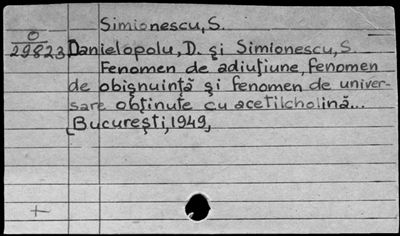 Simionescu, S.
O
29823 Danielopolu, D. şi Simionescu, S.
Fenomen de adiuţiune, fenomen
de obişnuinţă şi fenomen de univer-
sare obţinute cu acetilcholină...
[Bucureşti, 1949,
+